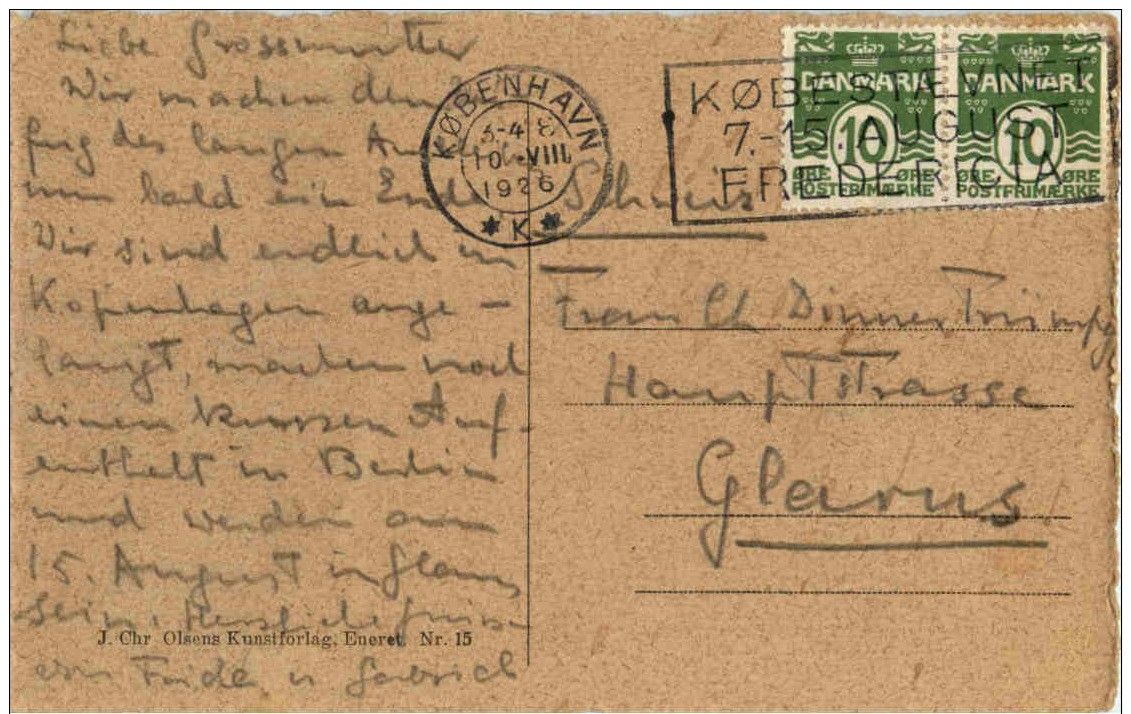 Liebe Grossmutter
Wir machen dem
fug des langen
nun bald ein Ende
Wir sind endlich in
Kopenhagen ange-
langt, machen noch
einen kurzen Auf-
enthalt in Berlin
und werden am
15. August in Glarus
sein. Herzliche Grüsse
J. Chr Olsens Kunstforlag, Eneret. Nr. 15
KØBENHAVN
3-4 8
10.VIII
1926
* K *
KØBESTÆVNET
7.-15. AUGUST
FREDERICIA
DANMARK
10
ØRE ØRE
POSTFRIMÆRKE
DANMARK
10
ØRE ØRE
POSTFRIMÆRKE
Schweiz
Frau Dinner Trümpy
Hauptstrasse
Glarus